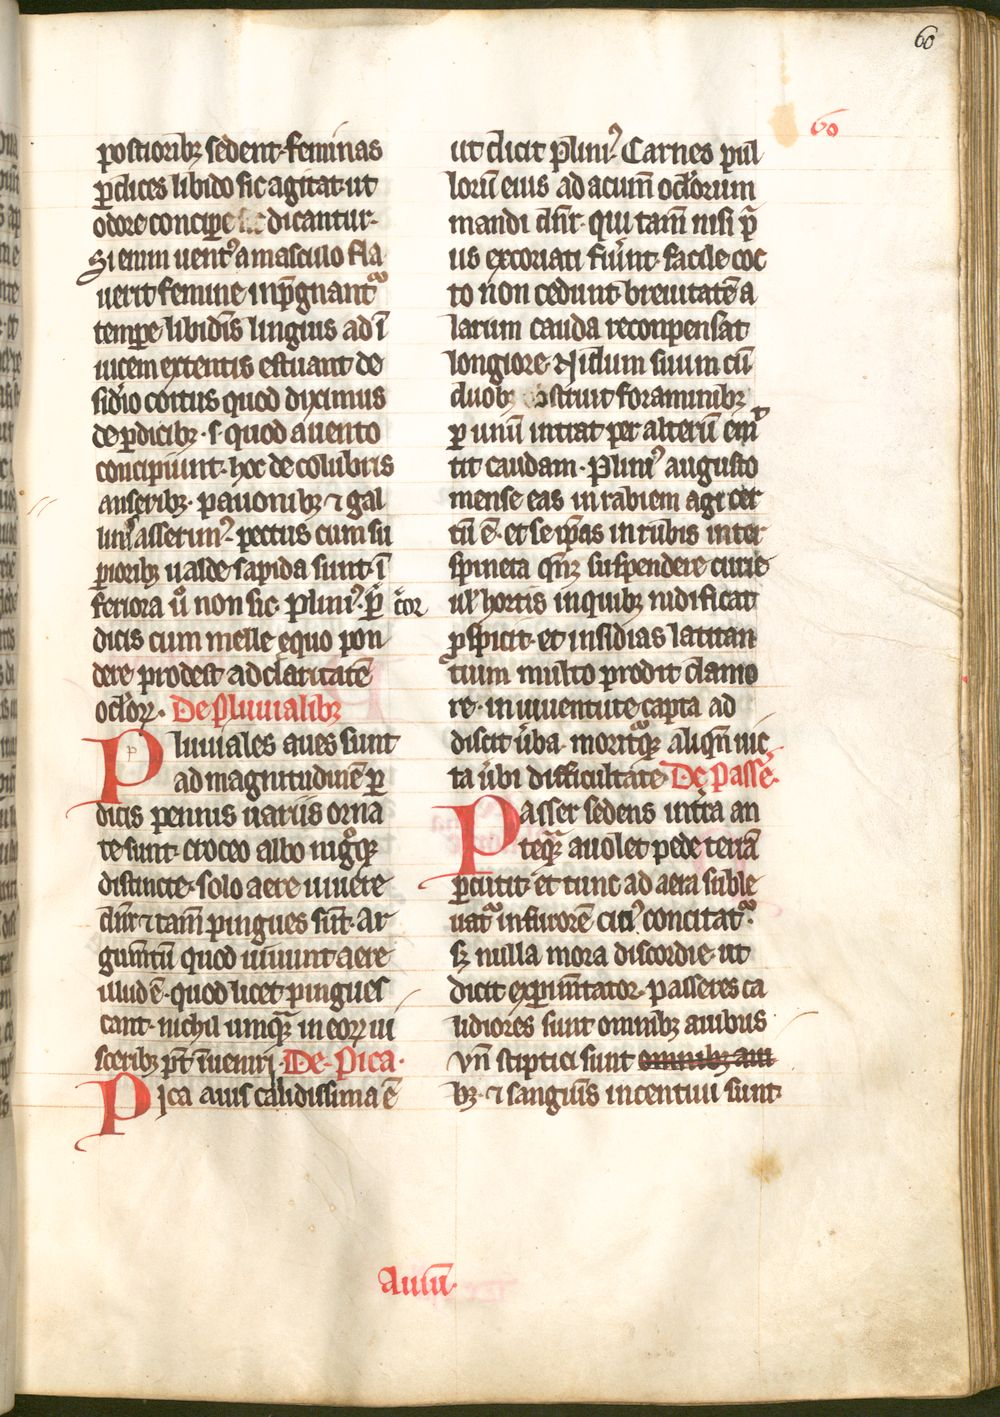 60
60
postiorib; sedent· feminas
ꝑdices libido sic agitat· ut
odore concipe dicantur·
Si enim uentꝰ a masculo fla
uerit femine inp̄gnant᷑
tempe libidis linguis ad ī
uicem extentis estuant de
sidio coitus quod diximus
de ꝑdicib;· s· quod a uento
concipiunt· hoc de colubris
anserib;· pauonib; ⁊ gal
linis asserunt᷑· pectus cum su
ꝑiorib; ualde sapida sunt· ī
feriora ū non sic· Pliniꝰ· ꝑ cor
dicis cum melle equo pon
dere prodest ad claritatē
oclōꝝ· De Pluuialib;
Pluuiales aues sunt
ad magnitudinē ꝑ
dicis pennis uariis orna
te sunt· croceo albo nigroq;
distincte· solo aere uiuere
dn̄r ⁊ tam̄ pingues sūt· Ar
gum̄tū quod uiuunt aere
illud ē· quod licet pingues
cant· nichil umq̄ in eoꝝ ui
scerib; pt̄ īueniri· De Pica·
Pica auis calidissima ē
ut dicit Pliniꝰ· Carnes pul
lorū eius ad acumē oclōrum
mandi dn̄r· qui tam̄ nisi p̄
us excoriati fiunt· facile coc
to non cedunt· breuitatē a
larum cauda recompensat
longiore· Nidum suum cū
duob; ostruit foraminib;
ꝑ unū intrat per alterū emit
tit caudam· Pliniꝰ augusto
mense eas in rabiem agi cer
tū ē· et se ip̄as in rubis inter
spineta qn̄q; suspendere curie
ul̄ hortis in quib; nidificat
ꝓspicit· et insidias latitan
tium multo prodit clamo
re· in iuuentute capta ad
discit ūba· morit᷑q; aliqn̄ uic
ta ūbi difficultate· De Passē·
Passer sedens intra an
teq̄ auolet pede terrā
ꝑcutit· et tunc ad aera suble
uat᷑ in furorē citiꝰ concitat᷑·
s; nulla mora discordie· ut
dicit exꝑim̄tator· passeres ca
lidiores sunt omnib; auibus
Vn̄ stiptici sunt omnib; aui
b;· ⁊ sanguīs incentiui sunt·
Auiū·